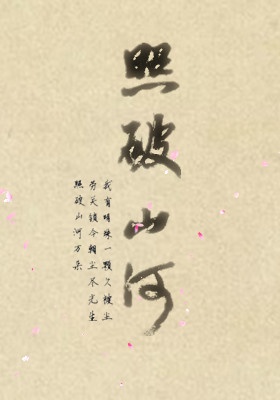 照破山河
我有明珠一颗久被尘
劳关锁今朝尘尽光生
照破山河万朵